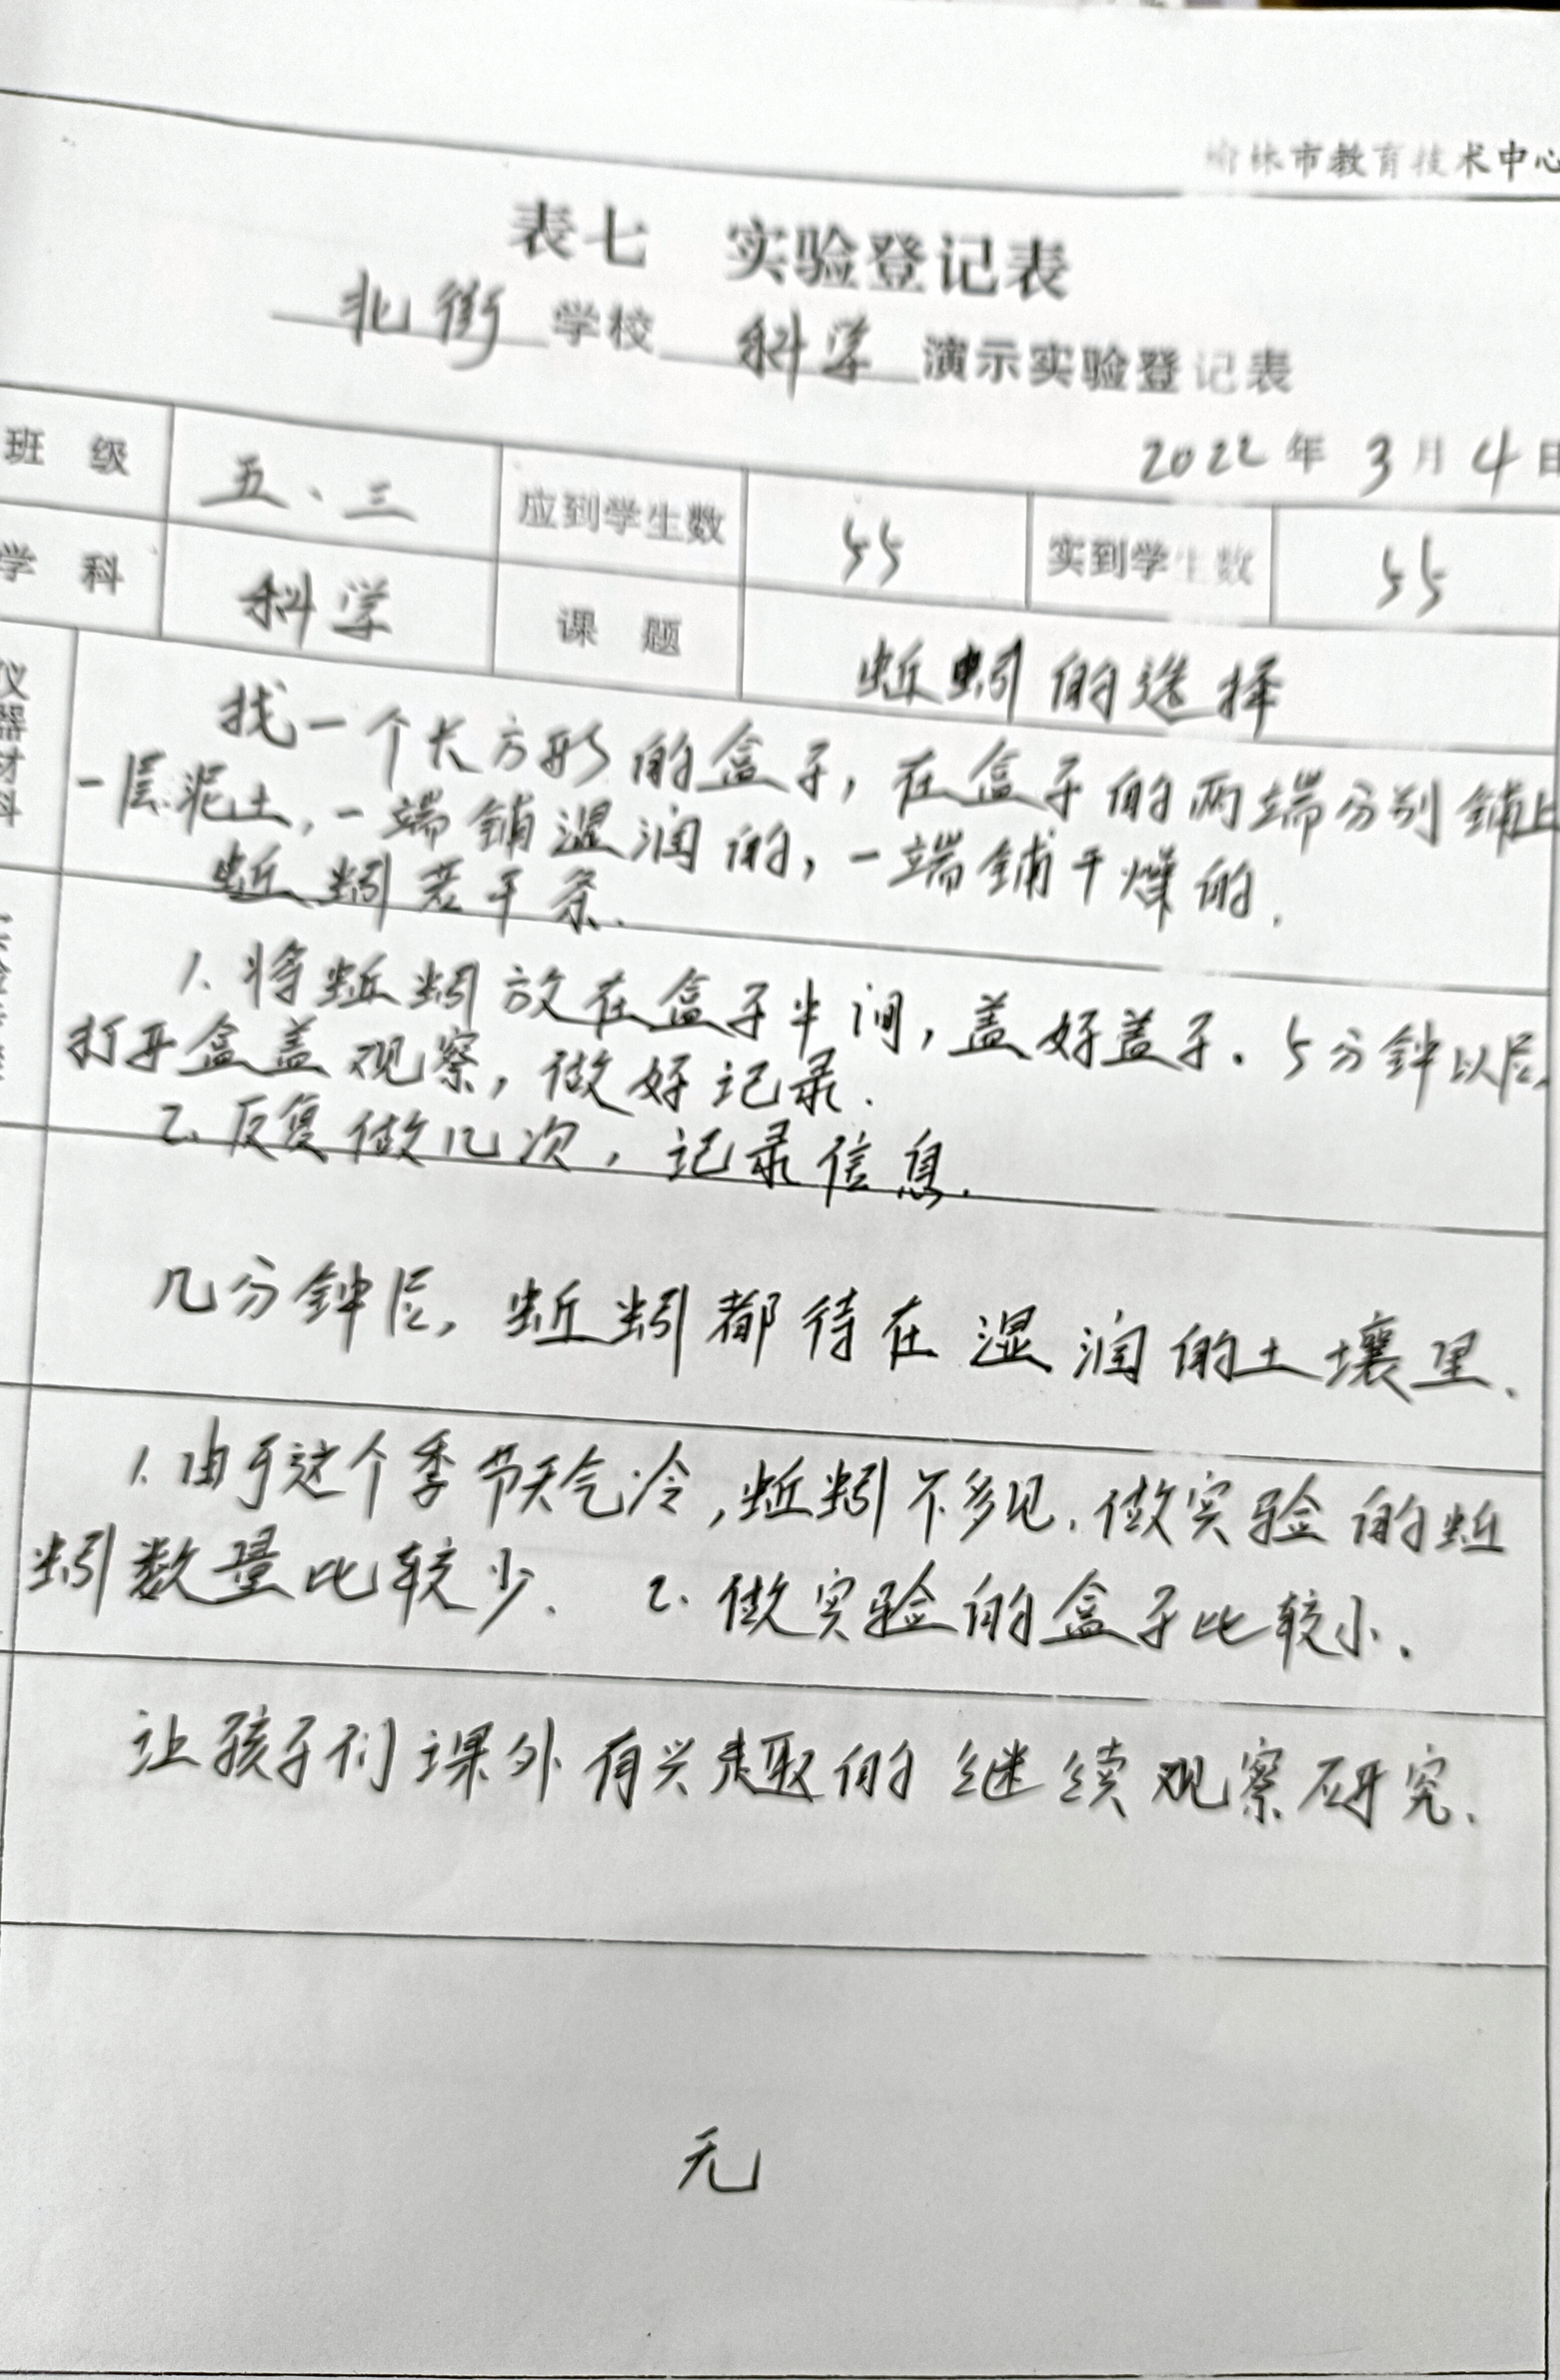 榆林市教育技术中心
表七 实验登记表
北街学校 科学 演示实验登记表
2022年3月4日
班级 五、三 应到学生数 55 实到学生数 55
学科 科学 课题 蚯蚓的选择
仪器材料
找一个长方形的盒子,在盒子的两端分别铺上
一层泥土,一端铺湿润的,一端铺干燥的.
蚯蚓若干条.
1. 将蚯蚓放在盒子中间,盖好盖子.5分钟以后,
打开盒盖观察,做好记录.
2. 反复做几次,记录信息.
几分钟后,蚯蚓都待在湿润的土壤里.
1. 由于这个季节天气冷,蚯蚓不多见.做实验的蚯
蚓数量比较少. 2. 做实验的盒子比较小.
让孩子们课外有兴趣的继续观察研究.
无